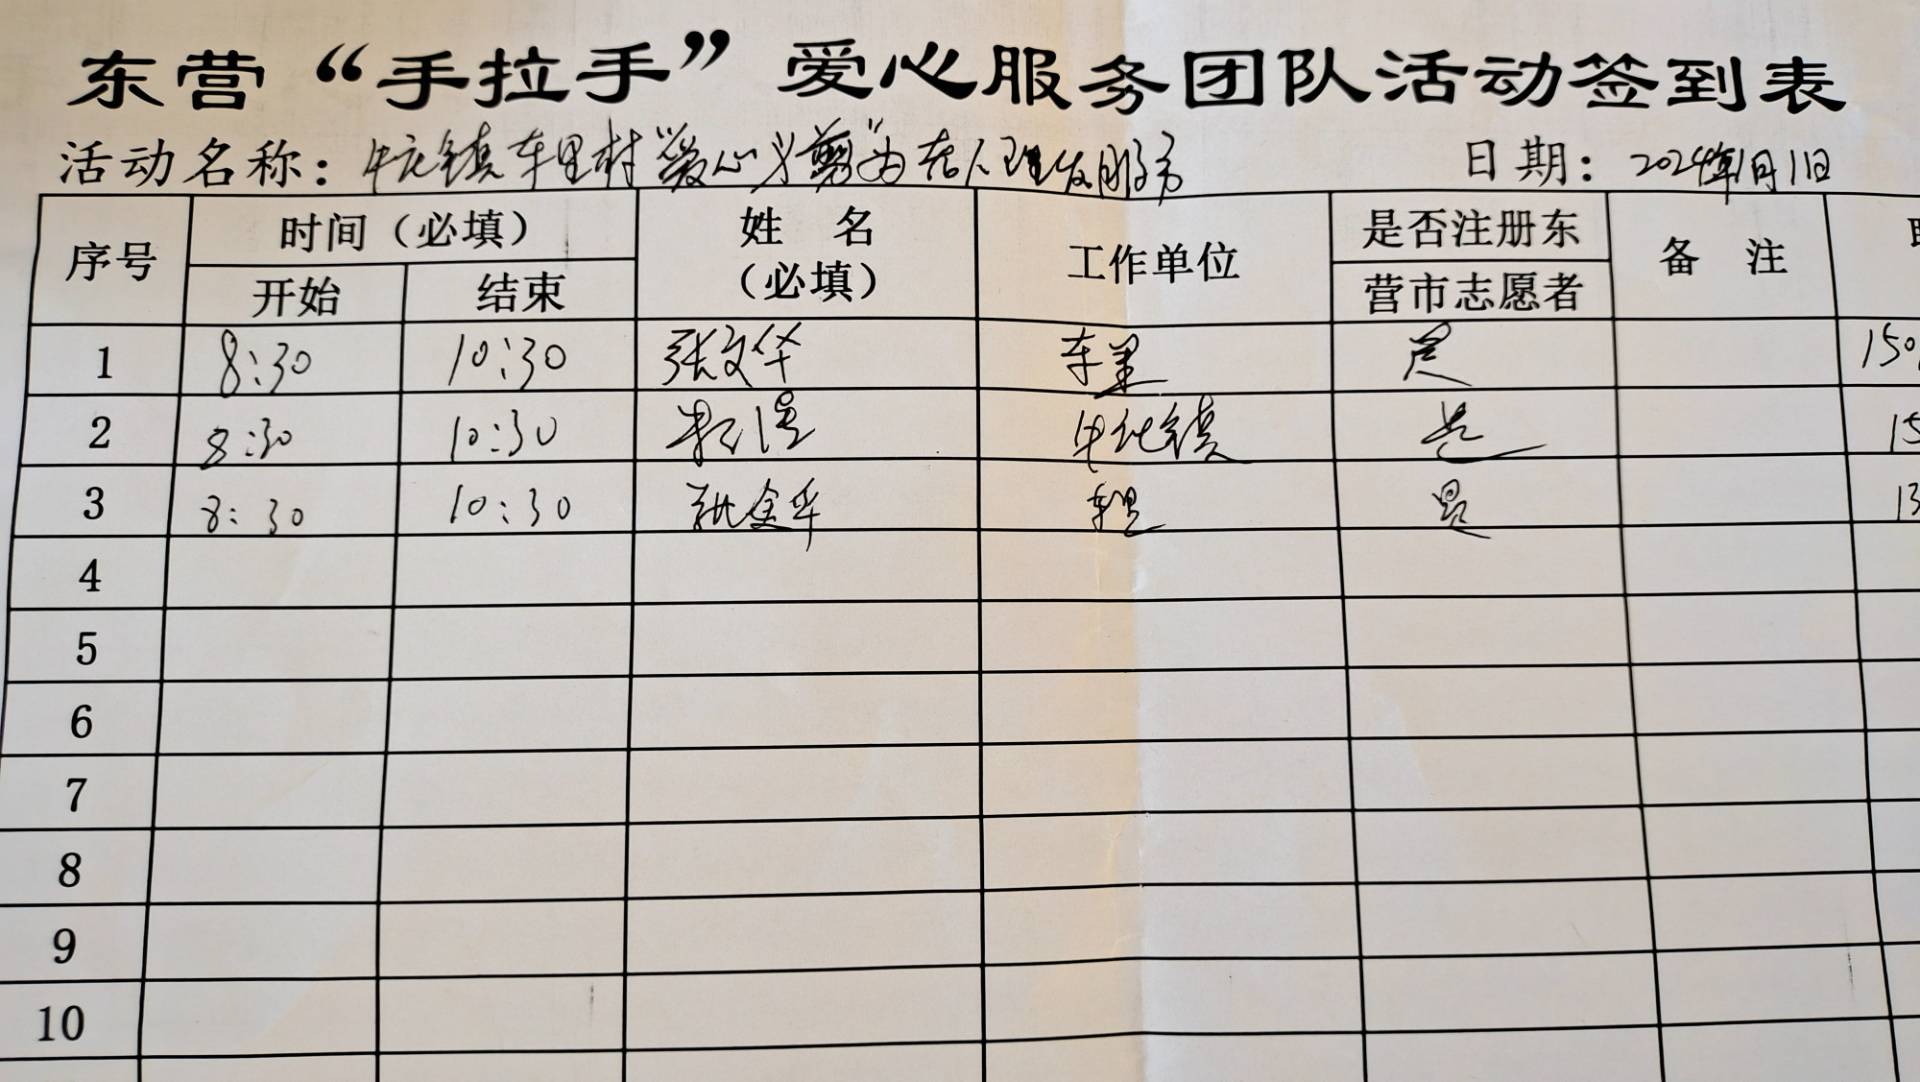 东营“手拉手”爱心服务团队活动签到表
活动名称：牛庄镇车里村“爱心义剪”为老人理发服务 日期：2024年1月11日
序号 时间（必填） 姓 名（必填） 工作单位 是否注册东营市志愿者 备 注
开始 结束
1 8:30 10:30 张文华 车里 是 150
2 8:30 10:30 牛庄镇 是 15
3 8:30 10:30 姚金华 车里 是 13
4
5
6
7
8
9
10